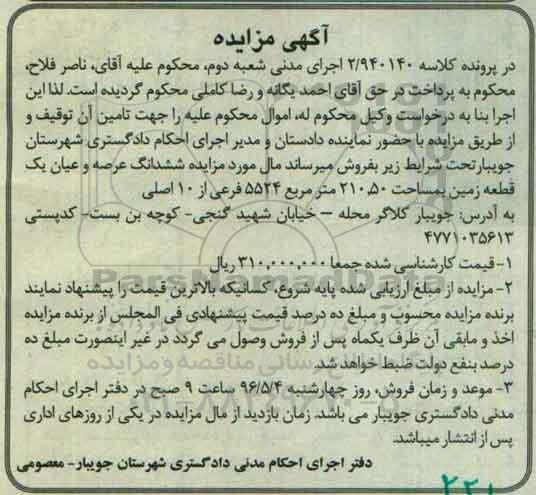 آگهی مزایده
در پرونده کلاسه ۲/۹۴۰۱۴۰ اجرای مدنی شعبه دوم، محکوم علیه آقای، ناصر فلاح،
محکوم به پرداخت در حق آقای احمد یگانه و رضا کاملی محکوم گردیده است. لذا این
اجرا بنا به درخواست وکیل محکوم له، اموال محکوم علیه را جهت تامین آن توقیف و
از طریق مزایده با حضور نماینده دادستان و مدیر اجرای احکام دادگستری شهرستان
جویبارتحت شرایط زیر بفروش میرساند مال مورد مزایده ششدانگ عرصه و عیان یک
قطعه زمین بمساحت ۲۱۰,۵۰ متر مربع ۵۵۲۴ فرعی از ۱۰ اصلی
به آدرس: جویبار کلاگر محله – خیابان شهید گنجی- کوچه بن بست- کدپستی
۴۷۷۱۰۳۵۶۱۳
۱- قیمت کارشناسی شده جمعا ۳۱۰,۰۰۰,۰۰۰ ریال
۲- مزایده از مبلغ ارزیابی شده پایه شروع، کسانیکه بالاترین قیمت را پیشنهاد نمایند
برنده مزایده محسوب و مبلغ ده درصد قیمت پیشنهادی فی المجلس از برنده مزایده
اخذ و مابقی آن ظرف یکماه پس از فروش وصول می گردد در غیر اینصورت مبلغ ده
درصد بنفع دولت ضبط خواهد شد.
۳- موعد و زمان فروش، روز چهارشنبه ۹۶/۵/۴ ساعت ۹ صبح در دفتر اجرای احکام
مدنی دادگستری جویبار می باشد. زمان بازدید از مال مزایده در یکی از روزهای اداری
پس از انتشار میباشد.
دفتر اجرای احکام مدنی دادگستری شهرستان جویبار- معصومی
ParsNamadData